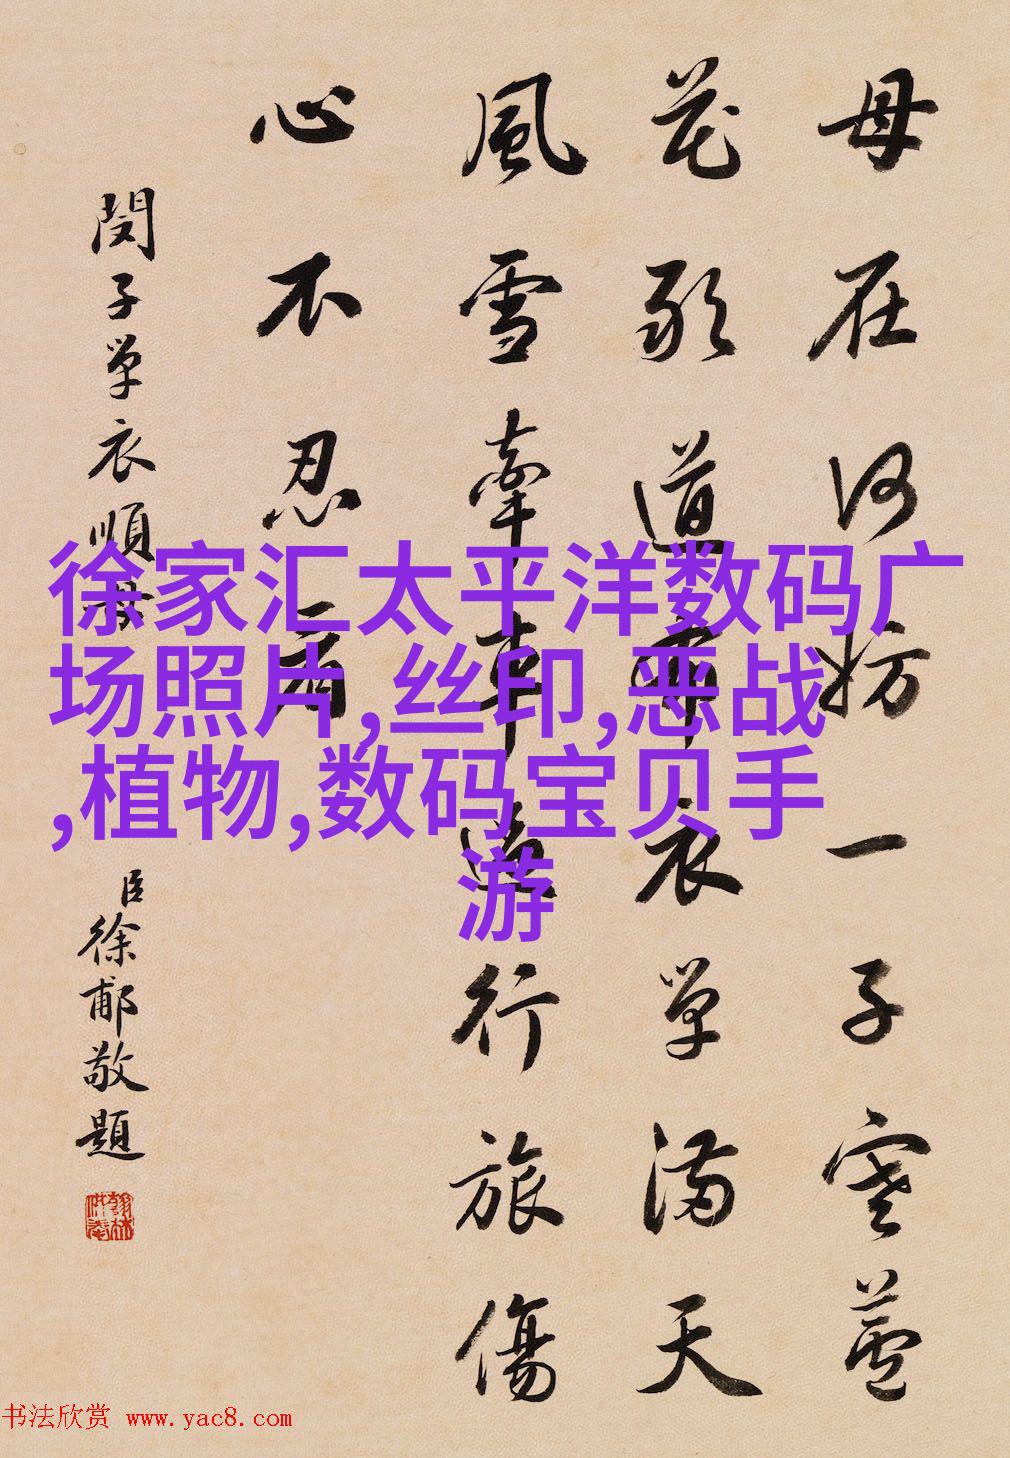 母在何妨一子寒蘆
花敢道布衣單滿天
風雪牽車行旅傷
心不忍看
閔子單衣順母
臣徐郙敬題
翰林供奉
徐家汇太平洋数码广
场照片,丝印,恶战
,植物,数码宝贝手
游
书法欣赏 www.yac8.com